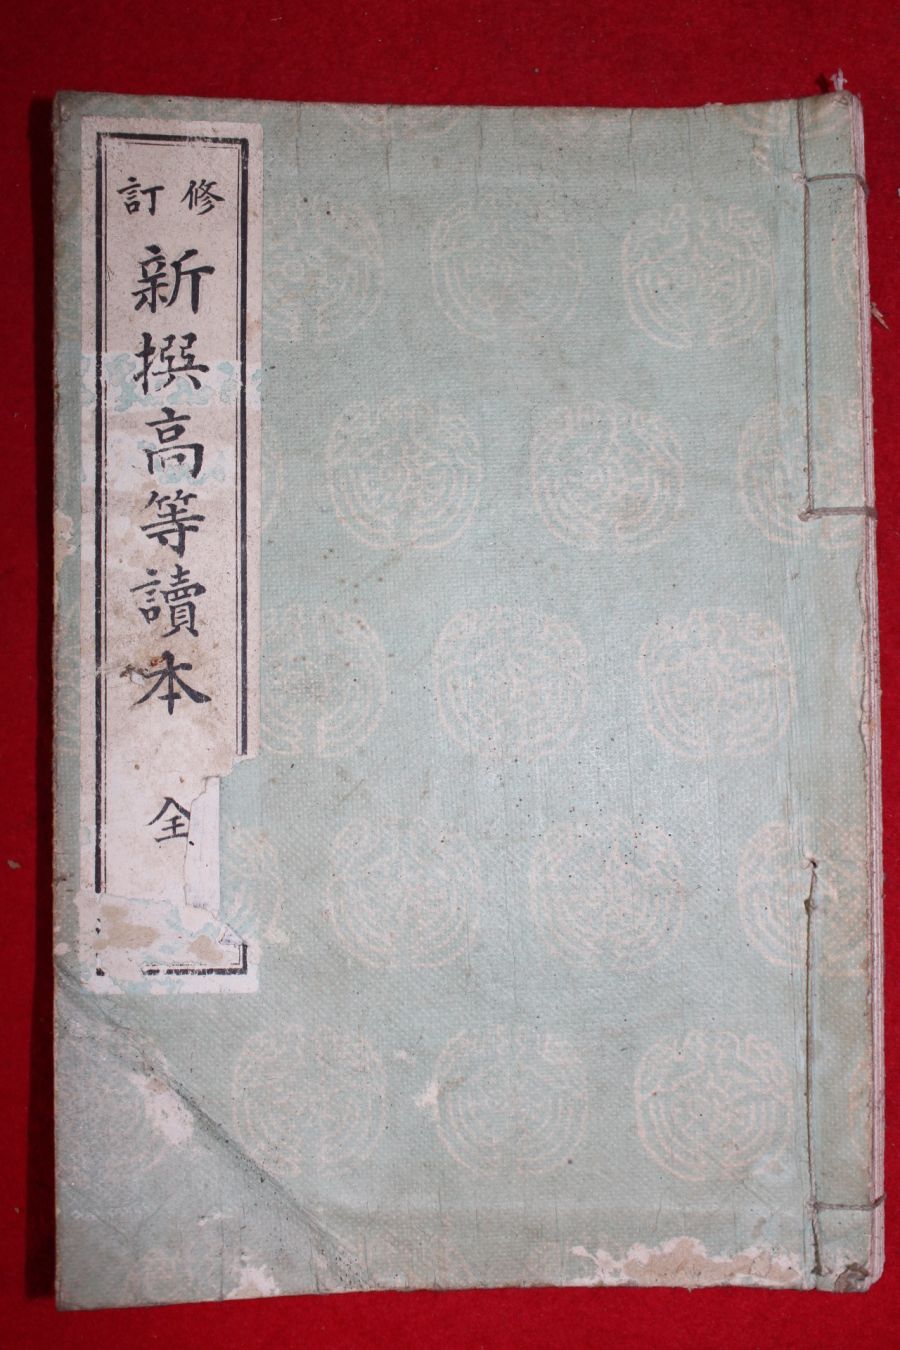 修訂
新撰高等讀本
全